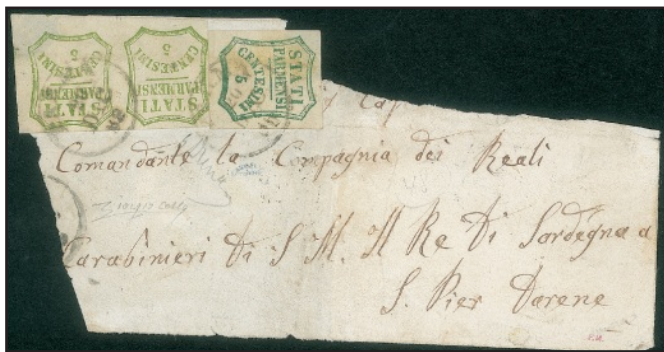 STATI
PARMENSI
CENTESIMI
5
STATI
PARMENSI
CENTESIMI
5
STATI
PARMENSI
CENTESIMI
5
Cap
Comandante la Compagnia dei Reali
Carabinieri di S. M. Il Re di Sardegna a
S. Pier Darene